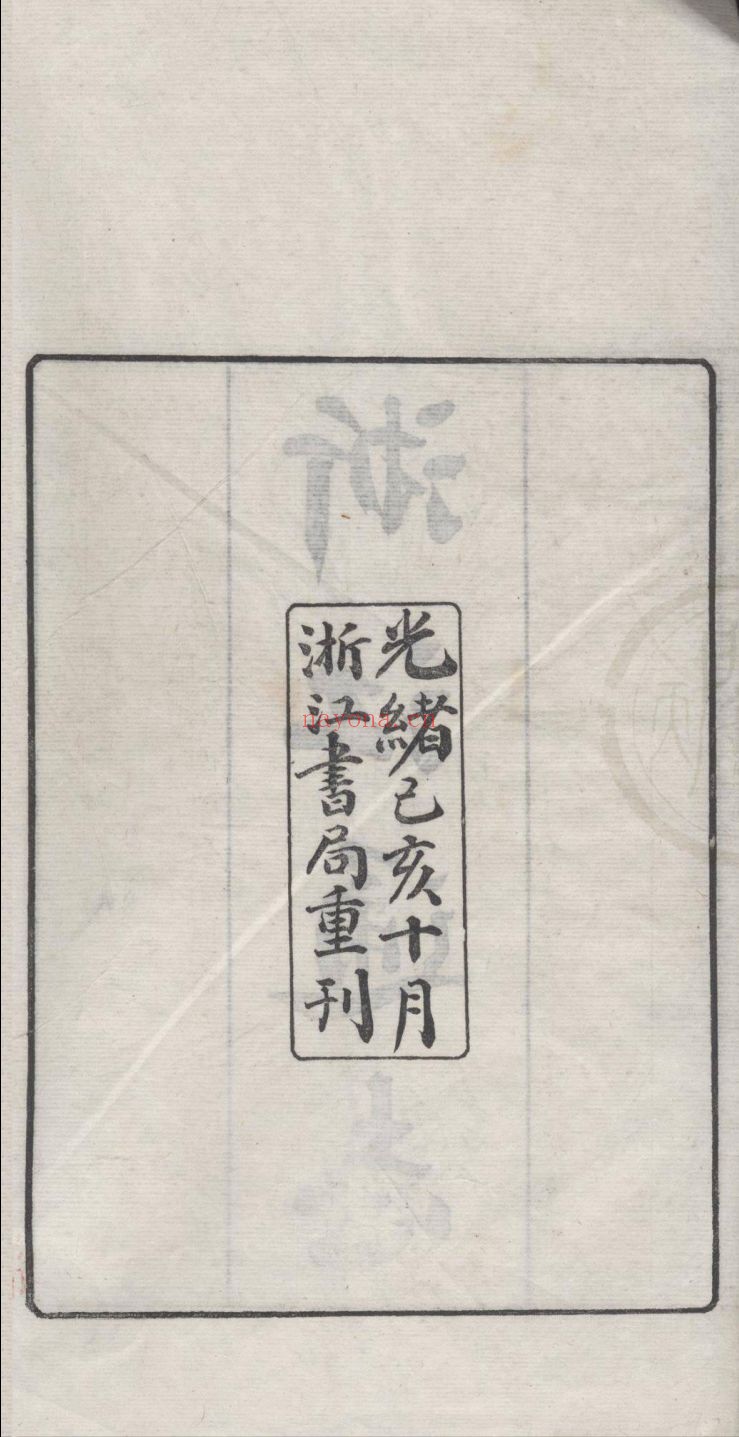 光緒己亥十月
浙江書局重刊
浙
志